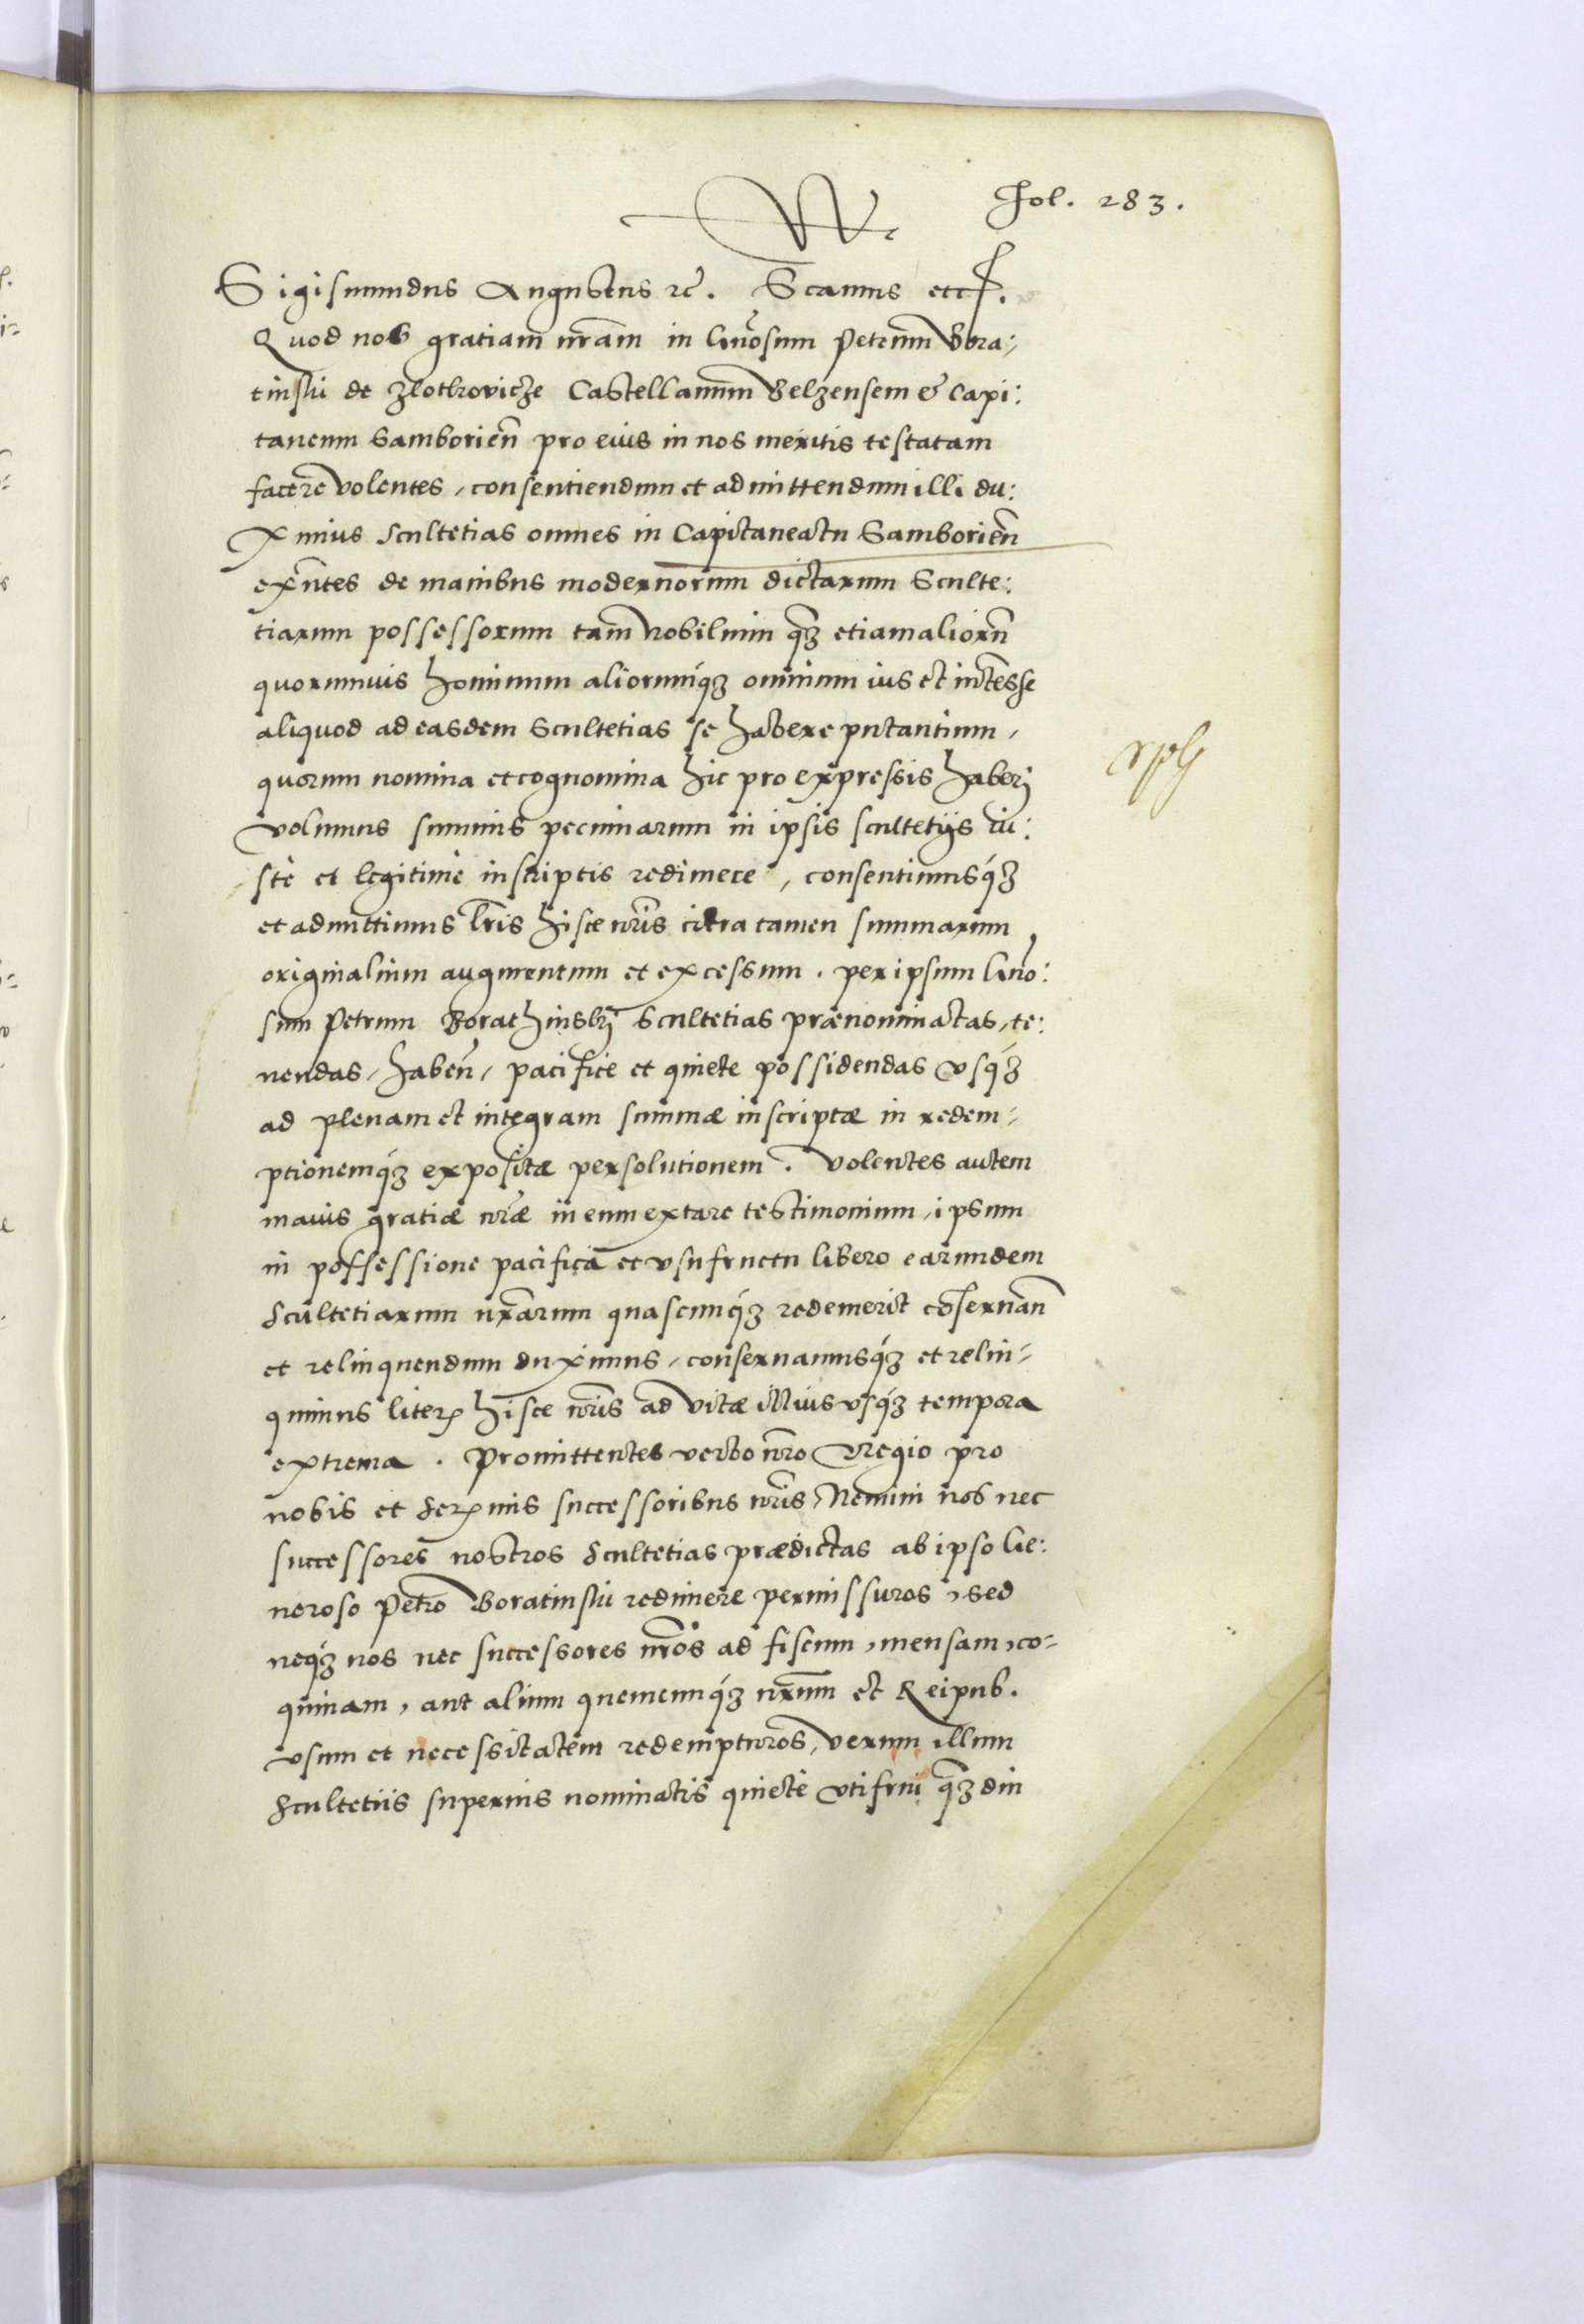 Fol. 283.
Sigismundus Augustus rc̃. Scamus etc.
Quod nos gratiam nr̃am in Gnõsum Petrum Bora:
tinski de Zlothrovicze Castellanum Belzensem & Capi:
taneum Samborien̄ pro eius in nos meritis testatam
facere volentes, consentiendum et admittendum illi du:
ximus scultetias omnes in Capitaneatu Samborien̄
exn̄tes de manibus modernorum dictarum Sculte:
tiarum possessorum tam nobilium q̃ȝ etiam aliorū
quorumvis hominum aliorumq́ȝ omnium ius et intesse
aliquod ad easdem Scultetias se habere putantium,
quorum nomina et cognomina hic pro expressis haberj
volumus summis pecuniarum in ipsis scultetijs iu:
stè et legitimè inscriptis redimere, consentimusq́ȝ
et admittimus lr̃is hisce nr̃is citra tamen summarum
originalium augmentum et excessum. per ipsum Gnõ:
sum Petrum Borathinskj Scultetias prænominatas, te:
nendas, haben̄, pacifice et quiete possidendas vsq́ȝ
ad plenam et integram summæ inscriptæ in redem-
ptionemq́ȝ expositæ persolutionem. Volentes autem
maius gratiæ nr̃æ in eum extare testimonium, ipsum
in possessione pacificà et vsufructu libero earundem
Scultetiarum nr̃arum quascunq́ȝ redemerit cōseruan̄
et relinquendum duximus, conseruamusq́ȝ et relin-
quimus literis hisce nr̃is ad vitæ illius vsq́ȝ tempora
extrema. Promittentes verbo nr̃o Regio pro
nobis et Serx̃mis successoribus nr̃is Nemini nos nec
successores nostros Scultetias prædictas ab ipso Ge:
neroso Petro Boratinski redimere permissuros, sed
neq́ȝ nos nec successores nr̃os ad fiscum, mensam, co-
quinam, aut alium quemcunq́ȝ nr̃um et Reipub.
vsum et necessitatem redempturos, verum illum
Scultetiis superius nominatis quietè vtifrui q̃ȝdiu